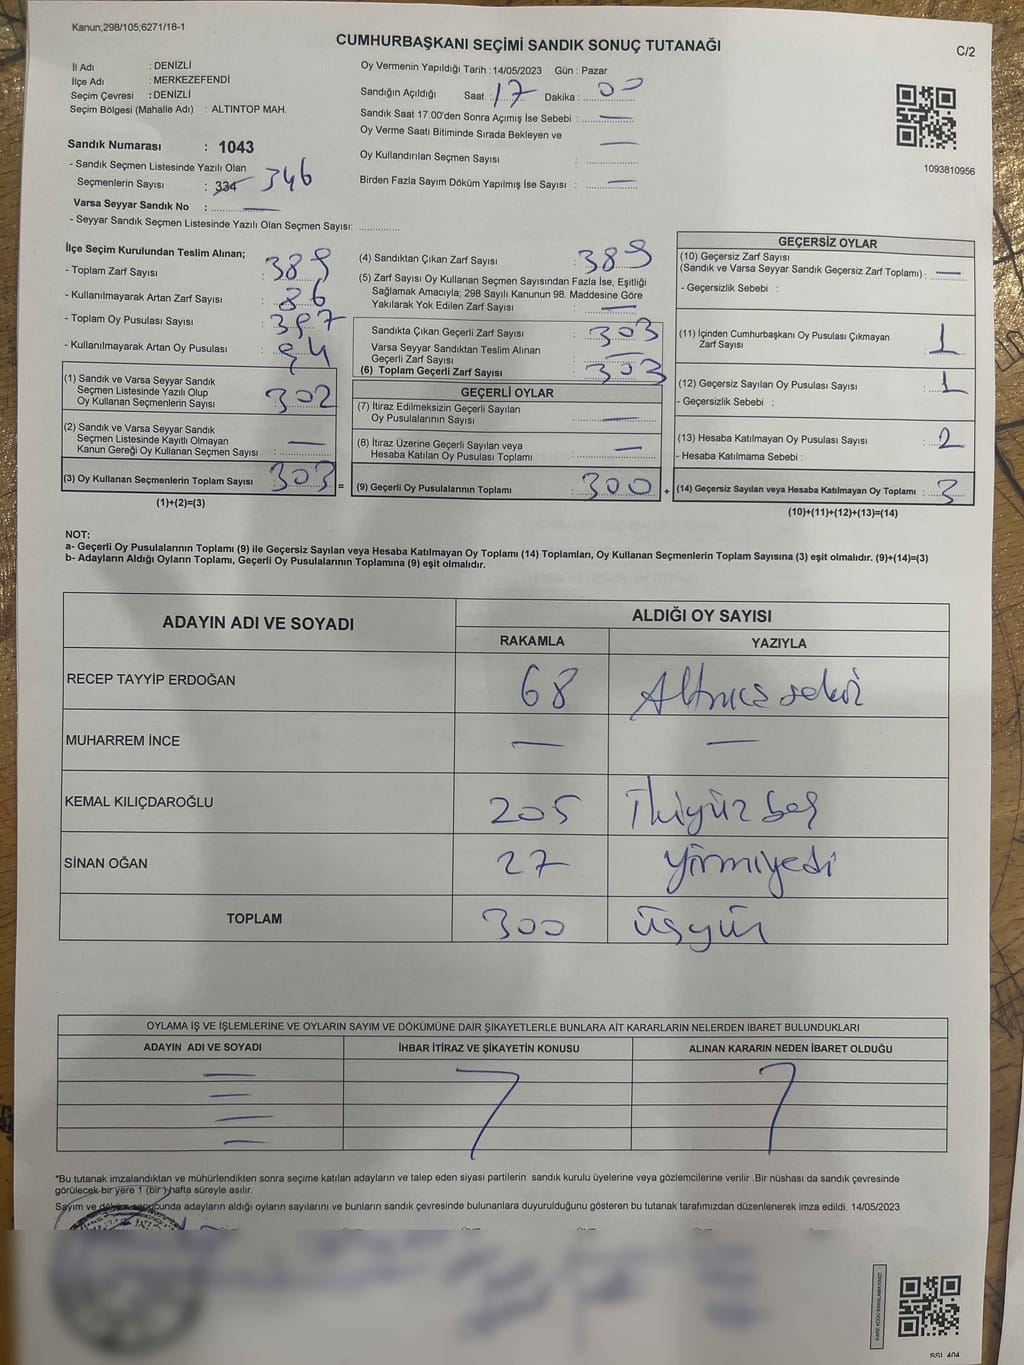 Kanun;298/105;6271/18-1
CUMHURBAŞKANI SEÇİMİ SANDIK SONUÇ TUTANAĞI
C/2
İl Adı : DENİZLİ
İlçe Adı : MERKEZEFENDİ
Seçim Çevresi : DENİZLİ
Seçim Bölgesi (Mahalle Adı) : ALTINTOP MAH.
Oy Vermenin Yapıldığı Tarih : 14/05/2023 Gün : Pazar
Sandığın Açıldığı Saat : 17 Dakika : 00
Sandık Saat 17:00'den Sonra Açımış İse Sebebi : —
Oy Verme Saati Bitiminde Sırada Bekleyen ve —
Oy Kullandırılan Seçmen Sayısı :
Birden Fazla Sayım Döküm Yapılmış İse Sayısı : —
1093810956
Sandık Numarası : 1043
- Sandık Seçmen Listesinde Yazılı Olan
Seçmenlerin Sayısı : 334 346
Varsa Seyyar Sandık No : —
- Seyyar Sandık Seçmen Listesinde Yazılı Olan Seçmen Sayısı:
İlçe Seçim Kurulundan Teslim Alınan;
- Toplam Zarf Sayısı : 389
- Kullanılmayarak Artan Zarf Sayısı : 86
- Toplam Oy Pusulası Sayısı : 397
- Kullanılmayarak Artan Oy Pusulası : 94
(1) Sandık ve Varsa Seyyar Sandık
Seçmen Listesinde Yazılı Olup
Oy Kullanan Seçmenlerin Sayısı : 302
(2) Sandık ve Varsa Seyyar Sandık
Seçmen Listesinde Kayıtlı Olmayan
Kanun Gereği Oy Kullanan Seçmen Sayısı : —
(3) Oy Kullanan Seçmenlerin Toplam Sayısı 303
(1)+(2)=(3)
(4) Sandıktan Çıkan Zarf Sayısı : 389
(5) Zarf Sayısı Oy Kullanan Seçmen Sayısından Fazla İse, Eşitliği
Sağlamak Amacıyla; 298 Sayılı Kanunun 98. Maddesine Göre
Yakılarak Yok Edilen Zarf Sayısı : —
Sandıkta Çıkan Geçerli Zarf Sayısı : 303
Varsa Seyyar Sandıktan Teslim Alınan
Geçerli Zarf Sayısı : —
(6) Toplam Geçerli Zarf Sayısı : 303
GEÇERLİ OYLAR
(7) İtiraz Edilmeksizin Geçerli Sayılan
Oy Pusulalarının Sayısı : —
(8) İtiraz Üzerine Geçerli Sayılan veya
Hesaba Katılan Oy Pusulası Toplamı : —
= (9) Geçerli Oy Pusulalarının Toplamı : 300
GEÇERSİZ OYLAR
(10) Geçersiz Zarf Sayısı
(Sandık ve Varsa Seyyar Sandık Geçersiz Zarf Toplamı) : —
- Geçersizlik Sebebi :
(11) İçinden Cumhurbaşkanı Oy Pusulası Çıkmayan
Zarf Sayısı : 1
(12) Geçersiz Sayılan Oy Pusulası Sayısı : 1
- Geçersizlik Sebebi :
(13) Hesaba Katılmayan Oy Pusulası Sayısı : 2
- Hesaba Katılmama Sebebi :
+ (14) Geçersiz Sayılan veya Hesaba Katılmayan Oy Toplamı : 3
(10)+(11)+(12)+(13)=(14)
NOT:
a- Geçerli Oy Pusulalarının Toplamı (9) ile Geçersiz Sayılan veya Hesaba Katılmayan Oy Toplamı (14) Toplamları, Oy Kullanan Seçmenlerin Toplam Sayısına (3) eşit olmalıdır. (9)+(14)=(3)
b- Adayların Aldığı Oyların Toplamı, Geçerli Oy Pusulalarının Toplamına (9) eşit olmalıdır.
ADAYIN ADI VE SOYADI ALDIĞI OY SAYISI
RAKAMLA YAZIYLA
RECEP TAYYİP ERDOĞAN 68 Altmış sekiz
MUHARREM İNCE — —
KEMAL KILIÇDAROĞLU 205 İkiyüz beş
SİNAN OĞAN 27 Yirmiyedi
TOPLAM 300 üçyüz
OYLAMA İŞ VE İŞLEMLERİNE VE OYLARIN SAYIM VE DÖKÜMÜNE DAİR ŞİKAYETLERLE BUNLARA AİT KARARLARIN NELERDEN İBARET BULUNDUKLARI
ADAYIN ADI VE SOYADI İHBAR İTİRAZ VE ŞİKAYETİN KONUSU ALINAN KARARIN NEDEN İBARET OLDUĞU
*Bu tutanak imzalandıktan ve mühürlendikten sonra seçime katılan adayların ve talep eden siyasi partilerin sandık kurulu üyelerine veya gözlemcilerine verilir .Bir nüshası da sandık çevresinde
görülecek bir yere 1 (bir) hafta süreyle asılır.
Sayım ve döküm sonucunda adayların aldığı oyların sayılarını ve bunların sandık çevresinde bulunanlara duyurulduğunu gösteren bu tutanak tarafımızdan düzenlenerek imza edildi. 14/05/2023